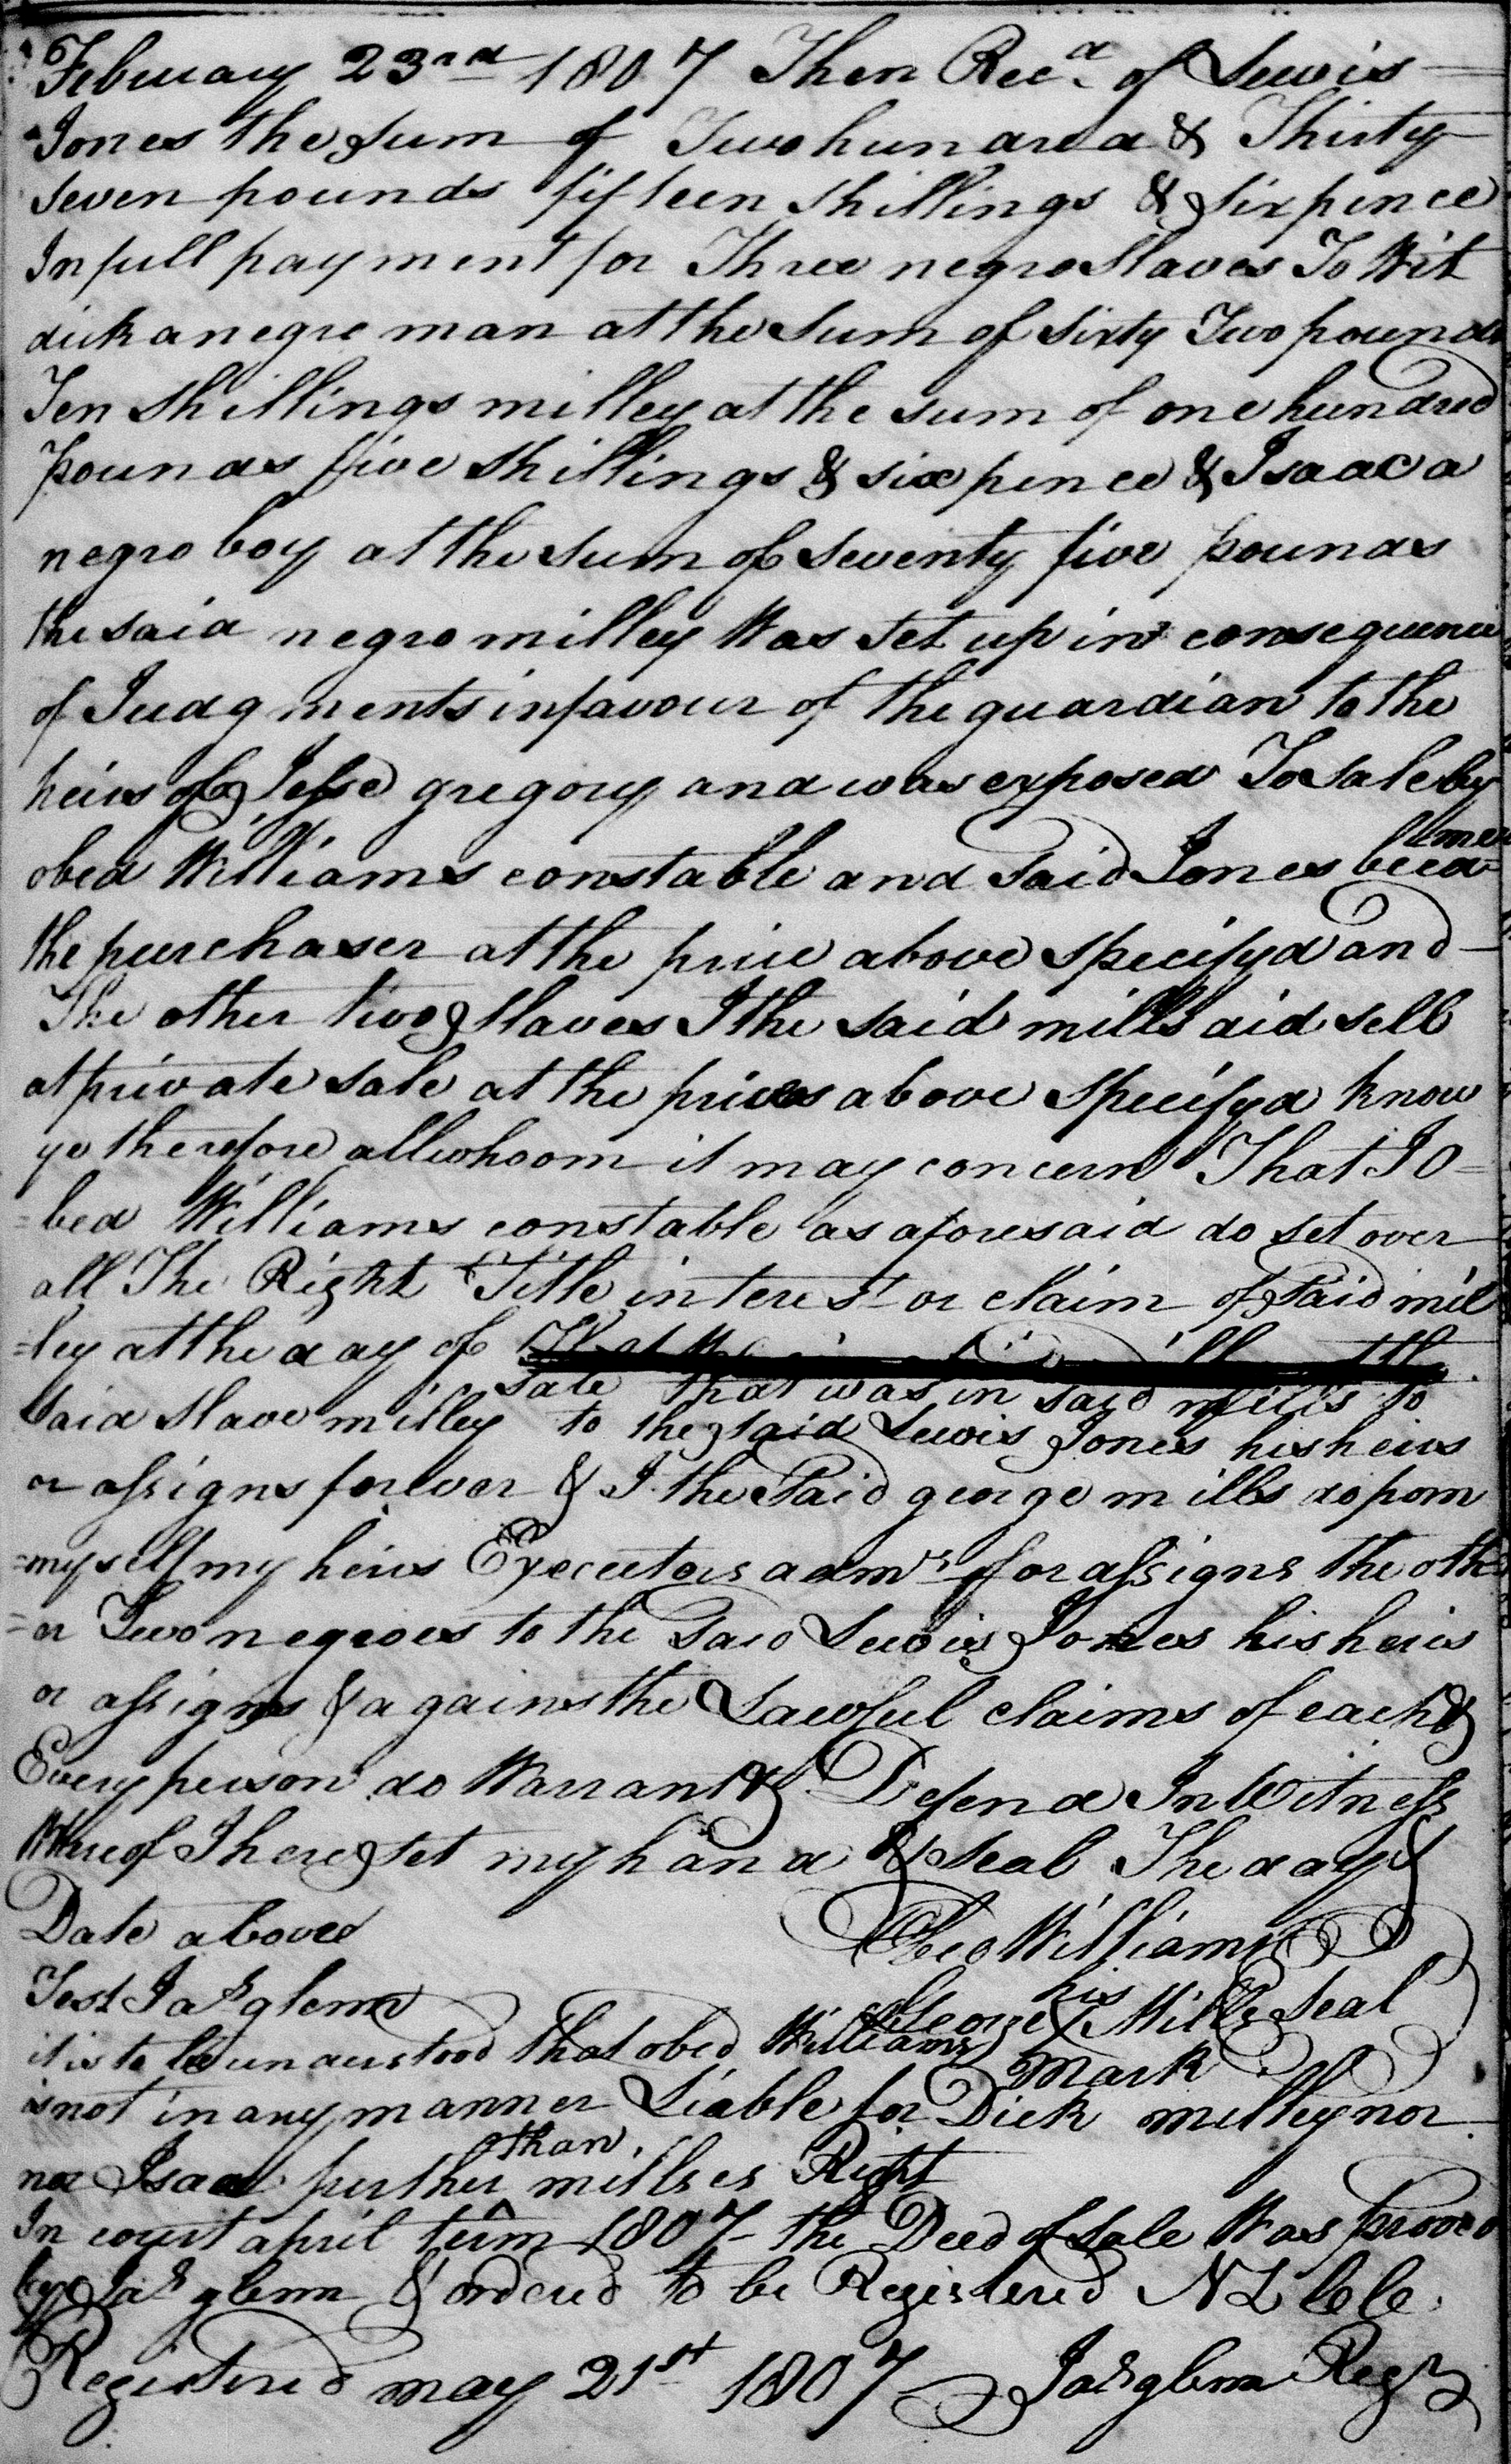 February 23rd 1807 Then Recd of Lewis
Jones the sum of Two hundred & Thirty
seven pounds fifteen shillings & sixpence
In full payment for Three negro slaves To Wit
dick a negro man at the sum of sixty Two pounds
Ten shillings milley at the sum of one hundred
pounds five shillings & six pence & Isaac a
negro boy at the sum of seventy five pounds
the said negro milley Was set up in consequence
of Judgments in favour of the guardian to the
heirs of Jesse gregory and was exposed To sale by
obed Williams constable and said Jones became
the purchaser at the price above specifyd and
The other two slaves I the said mills did sell
at private sale at the prices above specifyd know
ye therefore all whoom it may concern That I O=
=bed Williams constable as aforesaid do set over
all The Right Title interest or claim of said mil
=ley at the day of
sale that was in said mills to
said slave milley to the said Lewis Jones his heirs
or assigns forever & I the said george mills do from
=myself my heirs Executors admrs or assigns the oth
=er Two negroes to the said Lewis Jones his heirs
or assigns & against the Lawful claims of each &
Every person do Warrant & Defend In Witness
Whereof I here set my hand & seal The day &
Date above
Obed Williams
Test Jas glenn
his
George X Mills Seal
mark
it is to be understood that obed Williams
is not in any manner Liable for Dick milley nor
nor Isaac further than millses Right
In court april term 1807 the Deed of sale Was proved
by Jas glenn & ordered to be Registered N L
Registered may 21st 1807 Jas glenn Regr